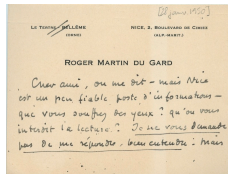 [28 janv 1950]
LE TERTRE-BELLÊME
(ORNE)
NICE, 3, BOULEVARD DE CIMIEZ
(ALP.-MARIT.)
ROGER MARTIN DU GARD
Cher ami, on me dit – mais Nice
est un peu fiable poste d'informations –
que vous souffrez des yeux ? qu'on vous
interdit la lecture ? Je ne vous demande
pas de me répondre, bien entendu. Mais